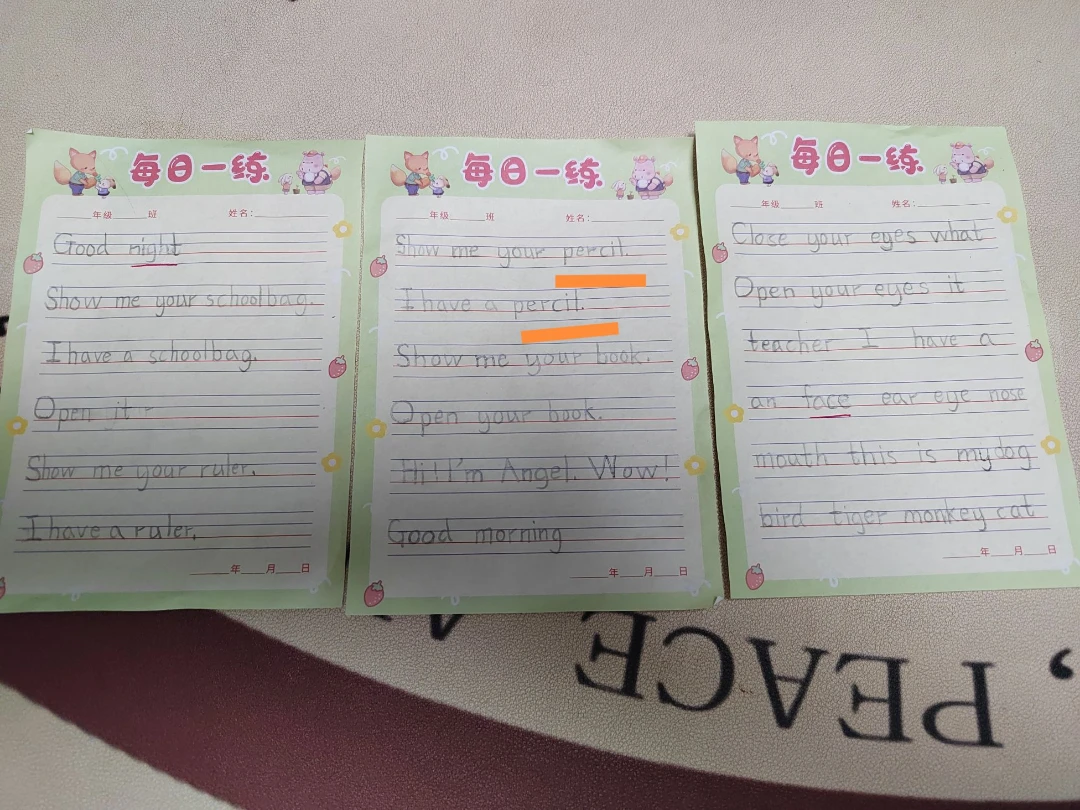 每日一练
年级____班 姓名:____
Good night
Show me your schoolbag.
I have a schoolbag.
Open it
Show me your ruler.
I have a ruler.
____年____月____日
每日一练
年级____班 姓名:____
Show me your percil.
I have a percil.
Show me your book.
Open your book.
Hi! I'm Angel. Wow!
Good morning
____年____月____日
每日一练
年级____班 姓名:____
Close your eyes what
Open your eyes it
teacher I have a
an face ear eye nose
mouth this is my dog
bird tiger monkey cat
____年____月____日
PEACE